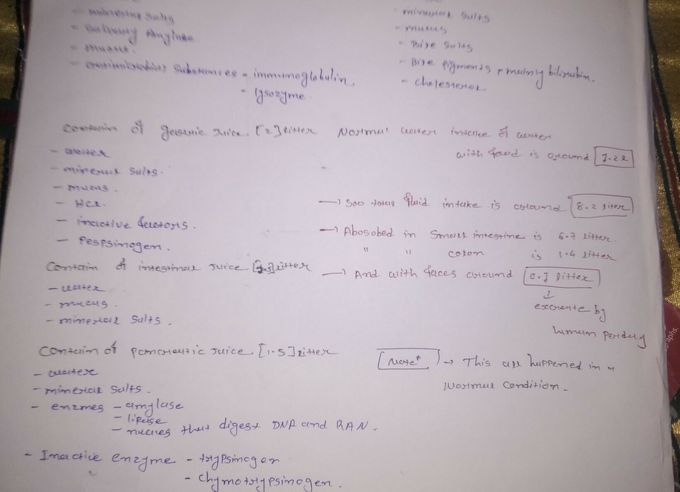 - mineral salts
- Salivary Amylase
- mucus.
- antimicrobial Substances = immunoglobulin.
= lysozyme.
- mineral salts
- mucus
- Bile salts
- Bile pigments, mainly bilirubin.
- cholesterol
contain of gastric Juice. [2] litter
- water
- mineral salts.
- mucus.
- HCL.
- inactive factors.
- Pespsinogen.
Contain of intestinal Juice litter
- water
- mucus.
- mineral salts.
Contain of pancreatic Juice. [1.5] litter
- water
- mineral salts.
- enzmes - amylase
- lipase
- nucles that digest DNA and RAN.
- Inactive enzyme - trypsinogen
- chymotrypsinogen.
Normal water intake of water
with food is around 1.2 L
→ soo total fluid intake is around 8.2 litter
→ Abosobed in Small intestine is 6.7 litter
" " colon is 1.4 litter
→ And with faces around 0.1 litter
↓
excreate by
human perday
Note* → This all happened in a
Normal Condition.